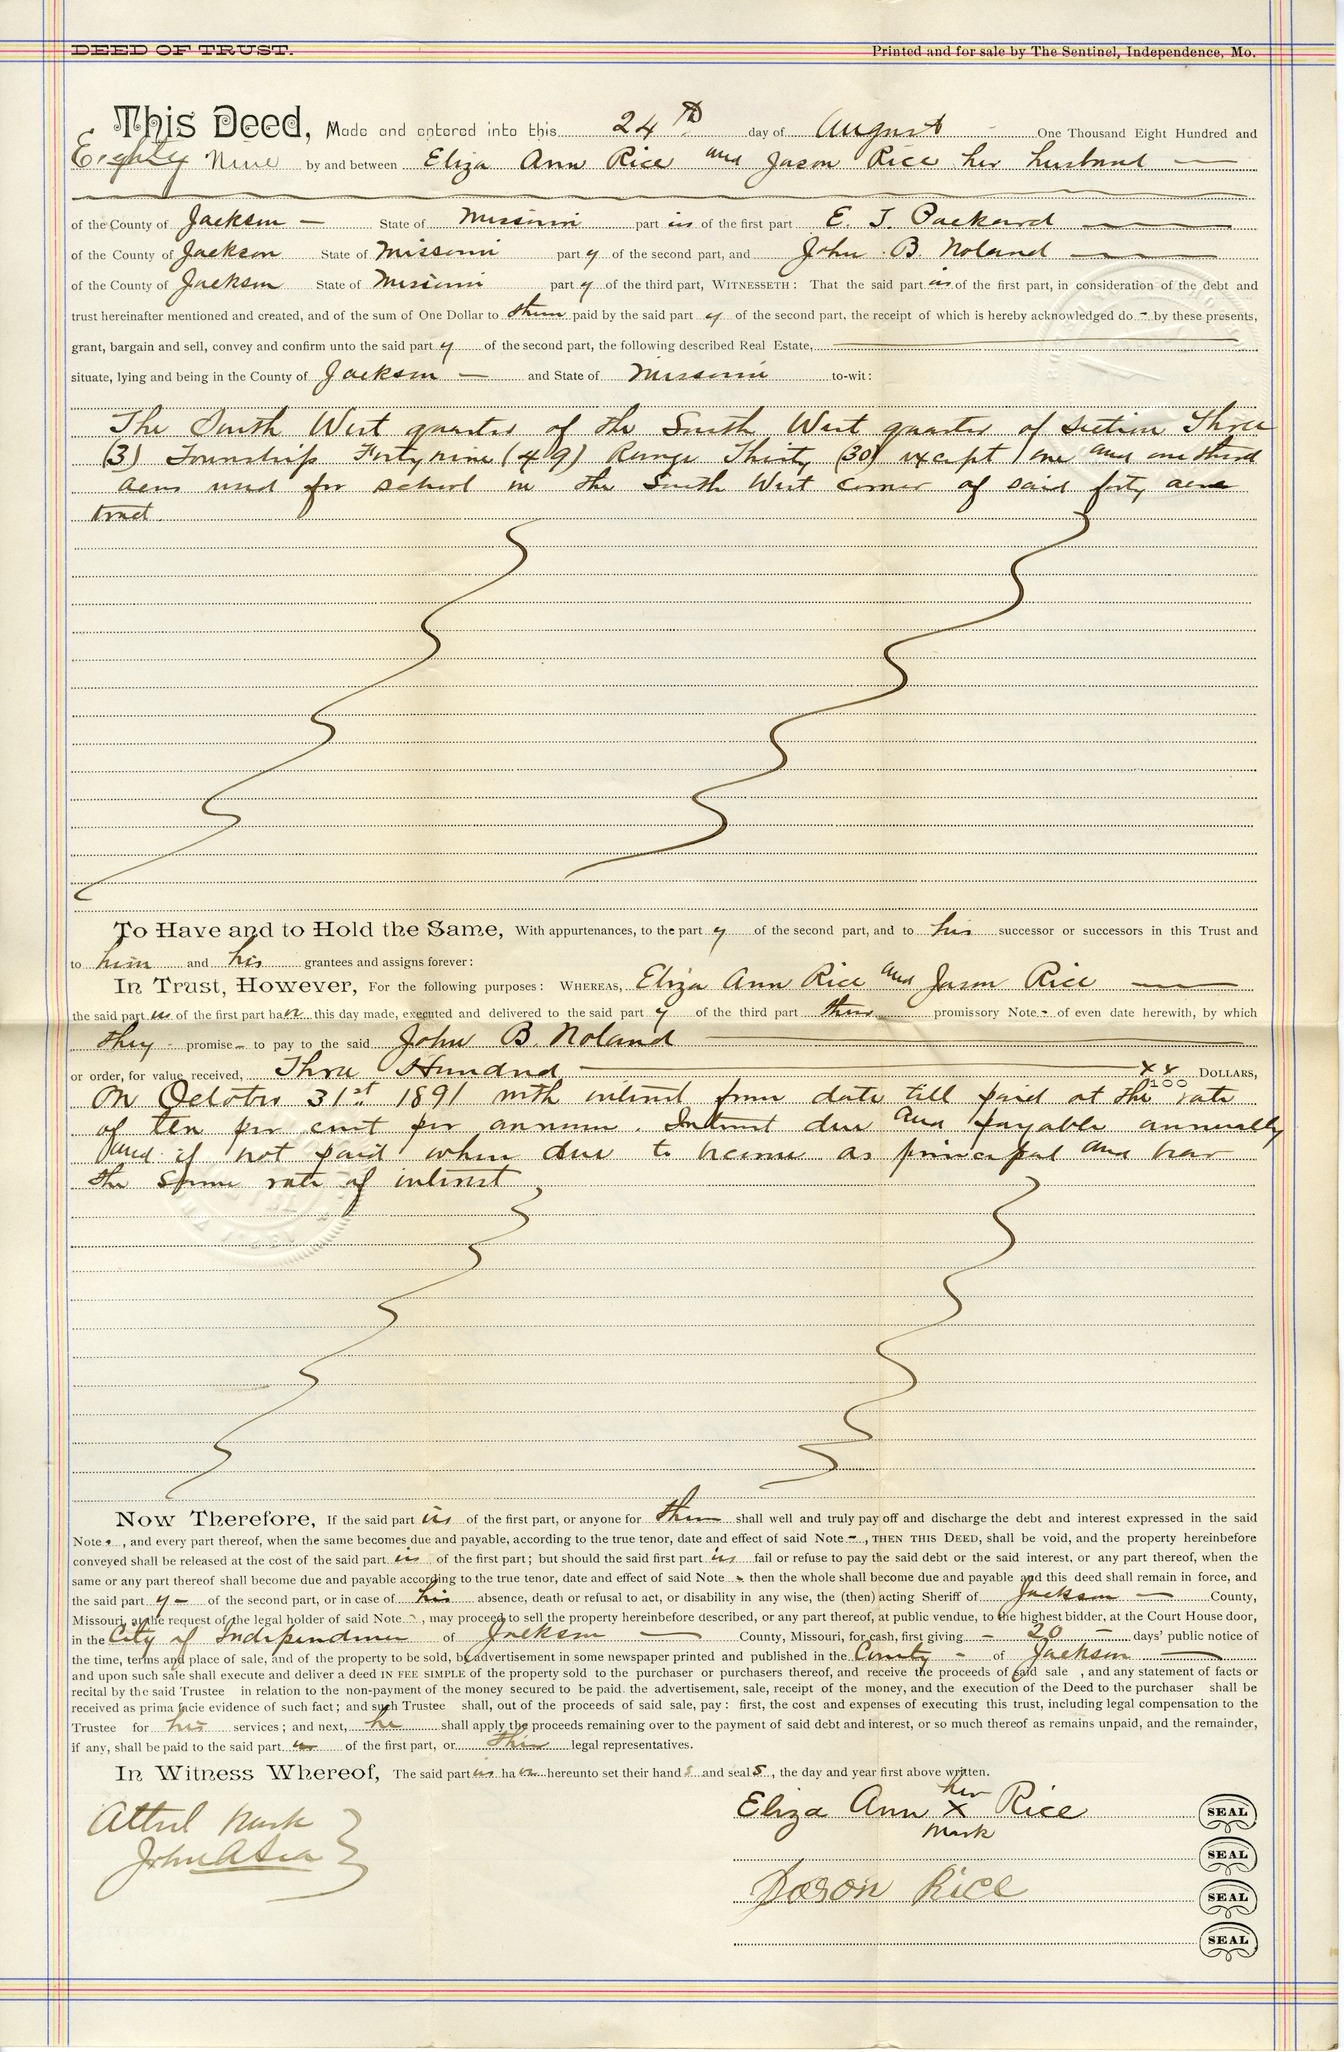 DEED OF TRUST.
Printed and for sale by The Sentinel, Independence, Mo.
This Deed, Made and entered into this 24th day of August One Thousand Eight Hundred and
Eighty Nine by and between Eliza Ann Rice and Jason Rice her husband
of the County of Jackson State of Missouri part ies of the first part E. T. Packard
of the County of Jackson State of Missouri part y of the second part, and John B. Noland
of the County of Jackson State of Missouri part y of the third part, WITNESSETH: That the said part ies of the first part, in consideration of the debt and
trust hereinafter mentioned and created, and of the sum of One Dollar to them paid by the said part y of the second part, the receipt of which is hereby acknowledged do - by these presents,
grant, bargain and sell, convey and confirm unto the said part y of the second part, the following described Real Estate,
situate, lying and being in the County of Jackson and State of Missouri to-wit:
The South West quarter of the South West quarter of section Three
(3) Township Forty nine (49) Range Thirty (30) except one and one third
acres used for school in the South West corner of said forty acre
tract.
To Have and to Hold the Same, With appurtenances, to the part y of the second part, and to his successor or successors in this Trust and
to him and his grantees and assigns forever:
In Trust, However, For the following purposes: WHEREAS, Eliza Ann Rice and Jason Rice
the said part ies of the first part have this day made, executed and delivered to the said part y of the third part their promissory Note - of even date herewith, by which
they promise - to pay to the said John B. Noland
or order, for value received, Three Hundred xx/100 DOLLARS,
On October 31st 1891 with interest from date till paid at the rate
of ten per cent per annum. Interest due and payable annually
and if not paid when due to become as principal and bear
the same rate of interest
Now Therefore, If the said part ies of the first part, or anyone for them shall well and truly pay off and discharge the debt and interest expressed in the said
Note -, and every part thereof, when the same becomes due and payable, according to the true tenor, date and effect of said Note -, THEN THIS DEED, shall be void, and the property hereinbefore
conveyed shall be released at the cost of the said part ies of the first part; but should the said first part ies fail or refuse to pay the said debt or the said interest, or any part thereof, when the
same or any part thereof shall become due and payable according to the true tenor, date and effect of said Note - then the whole shall become due and payable and this deed shall remain in force, and
the said part y - of the second part, or in case of his absence, death or refusal to act, or disability in any wise, the (then) acting Sheriff of Jackson County,
Missouri, at the request of the legal holder of said Note -, may proceed to sell the property hereinbefore described, or any part thereof, at public vendue, to the highest bidder, at the Court House door,
in the City of Independence of Jackson County, Missouri, for cash, first giving - 20 - days' public notice of
the time, terms and place of sale, and of the property to be sold, by advertisement in some newspaper printed and published in the County - of Jackson
and upon such sale shall execute and deliver a deed IN FEE SIMPLE of the property sold to the purchaser or purchasers thereof, and receive the proceeds of said sale , and any statement of facts or
recital by the said Trustee in relation to the non-payment of the money secured to be paid. the advertisement, sale, receipt of the money, and the execution of the Deed to the purchaser shall be
received as prima facie evidence of such fact; and such Trustee shall, out of the proceeds of said sale, pay: first, the cost and expenses of executing this trust, including legal compensation to the
Trustee for his services; and next, he shall apply the proceeds remaining over to the payment of said debt and interest, or so much thereof as remains unpaid, and the remainder,
if any, shall be paid to the said part ies of the first part, or their legal representatives.
In Witness Whereof, The said part ies have hereunto set their hands and seals, the day and year first above written.
her
Eliza Ann x Rice SEAL
mark
SEAL
Jason Rice SEAL
SEAL
Attest Mark
John A Sea